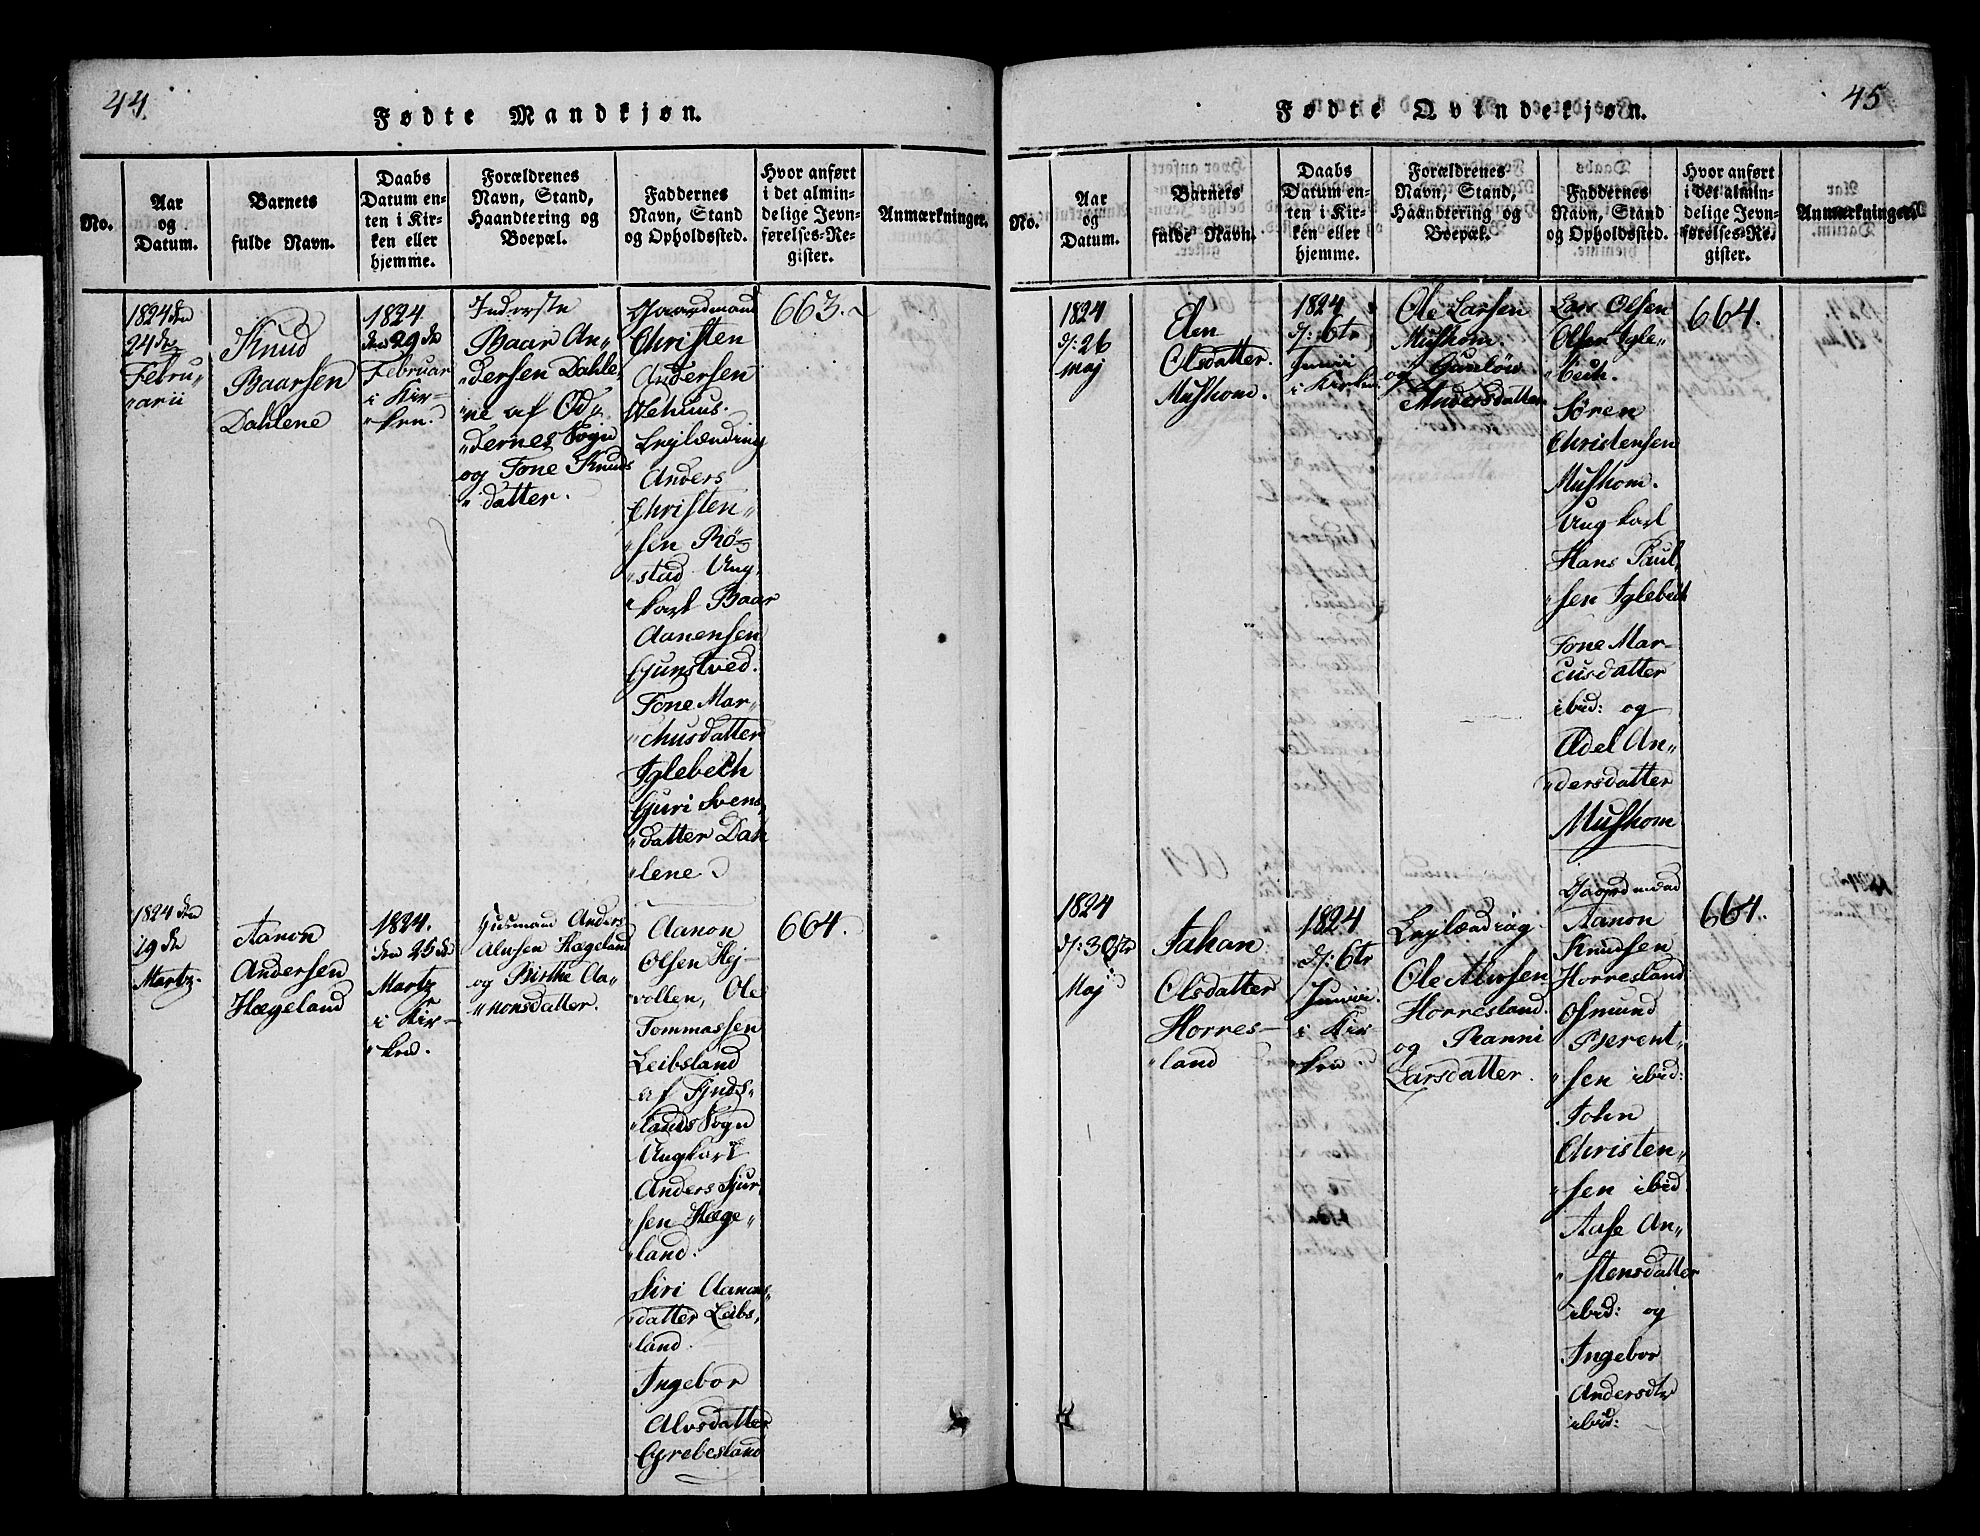 44.
Fødte Mandkjøn.
No.
Aar
og
Datum.
Barnets
fulde Navn.
Daabs
Datum en-
ten i Kir-
ken eller
hjemme.
Forældrenes
Navn, Stand,
Haandtering og
Boepæl.
Faddernes
Navn, Stand
og Opholdssted.
Hvor anført
i det almin-
delige Jevn-
førelses-Re-
gister.
Anmærkninger.
1824 den
24de
Febru-
"arii
Knud
Baarsen
Dahlene
1824
den 29de
Februar
i Kir-
"ken.
Inderste
Baar An-
"dersen Dahle-
"ne af Od-
"dernes Sogn
og Tone Knuds
"datter.
Gaardmand
Christen
Andersen
Leylænding
Anders
Christen"
"sen Rø-
"stad Ung-
"karl Baar
Aanensen
Gunstved.
Tone Mar-
"chusdatter
Iglebech
Guri Svens,
"datter Dah
"lene
663.
1824 den
19de
Martz.
Aanon
Andersen
Hægeland
1824.
den 25de
Martz
i Kir-
"ken.
Huusmand Anders
Alvsen Hægeland
og Birthe Aa-
"nonsdatter.
Aanon
Olsen Hej-
vollen, Ole
Tommassen
Leibsland
af Finds-
"lands Sogn
Ungkarl
Anders Sjur
"sen Hæge"
"land.
Siri Aanons-
"datter Leibs,
"land.
Ingebor
Alvsdatter
Grebesland
664.
45
Fødte Qvindekjøn.
No.
Aar
og
Datum.
Barnets
fulde Navn.
Daabs
Datum en-
ten i Kir-
ken eller
hjemme.
Forældrenes
Navn, Stand,
Haandtering og
Boepæl.
Faddernes
Navn, Stand
og Opholdssted.
Hvor anført
i det almin-
delige Jevn-
førelses-Re-
gister.
Anmærkninger.
1824
d: 26
maj
Elen
Olsdatter
Mushom.
1824
d: 6te
Junii
i Kirken.
Ole Larsen
Mushom.
og Gunløv
Andersdatter.
Lars Olsen
Olsen Igle"
"bech.
Søren
Christensen
Mushom.
Ung karl
Hans Paul,
"sen Iglebech
Tone Mar-
cusdatter
ibid: og
Adel An"
"dersdatter
Mushom
664.
1824
d: 30te
Maj
Jahan
Olsdatter
Horres-
"land
1824
d: 6te
Junii.
i Kir
"ken.
Leylænding.
Ole Alvsen
Horresland.
og Ranni
Larsdatter.
Gaardmand
Aanon
Knudsen
Horresland
Osmund
Berent"
"sen ibid:
John
Christen"
"sen ibid
Aase An"
"stensdatter
ibid: og
Ingebor
Andersdtr
ibid:
664.